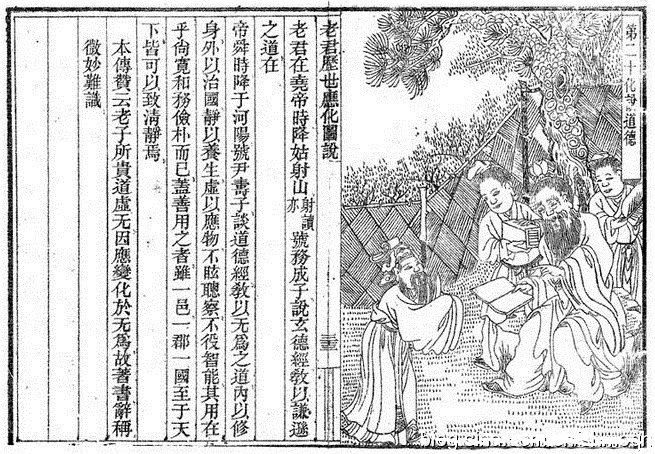 第二十化道德
老君歷世應化圖說
老君在堯帝時降姑射山射讀亦號務成子說玄德經教以謙遜
之道在
帝舜時降于河陽號尹壽子談道德經教以无爲之道內以修
身外以治國靜以養生虛以應物不眩聰察不役智能其用在
乎尚寬和務儉朴而已蓋善用之者雖一邑一郡一國至于天
下皆可以致清靜焉
本傳贊云老子所貴道虛无因應變化於无爲故著書辭稱
微妙難識